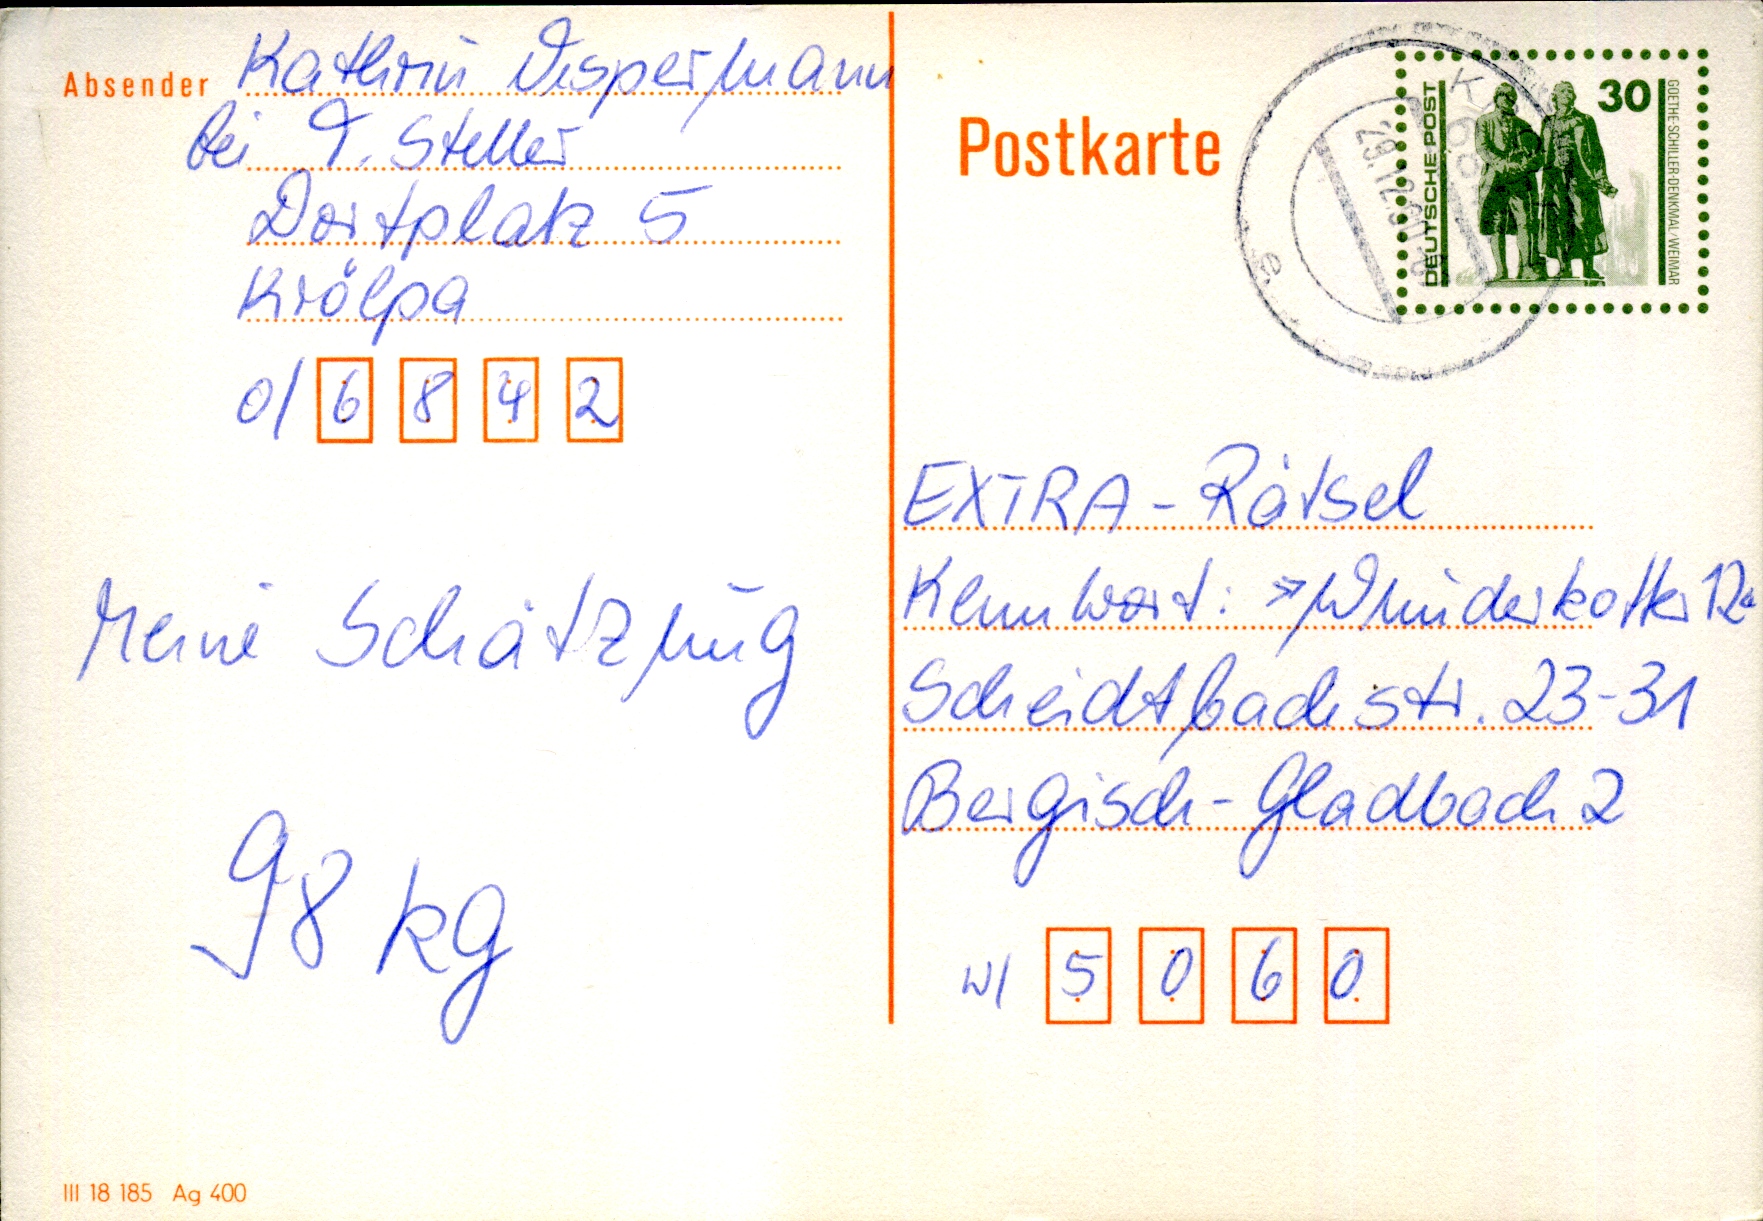 Absender Kathrin Vispermann
bei T. Steller
Dorfplatz 5
Krölpa
O/ 6 8 4 2
Meine Schätzung
98 kg
III 18 185 Ag 400
Postkarte
DEUTSCHE POST
30
GOETHE-SCHILLER-DENKMAL/WEIMAR
29.12.90
EXTRA-Rätsel
Kennwort: »Wunderkoffer 12«
Scheidtbachstr. 23-31
Bergisch-Gladbach 2
W/ 5 0 6 0